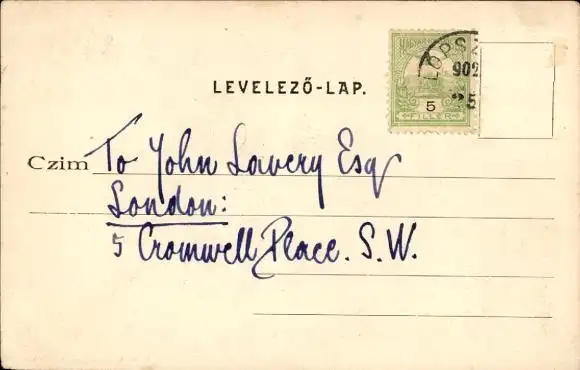 LEVELEZŐ-LAP.
MAGYAR
5
FILLER
LOPSZ
902
25
Czim To John Lavery Esq
London:
5 Cromwell Place. S.W.